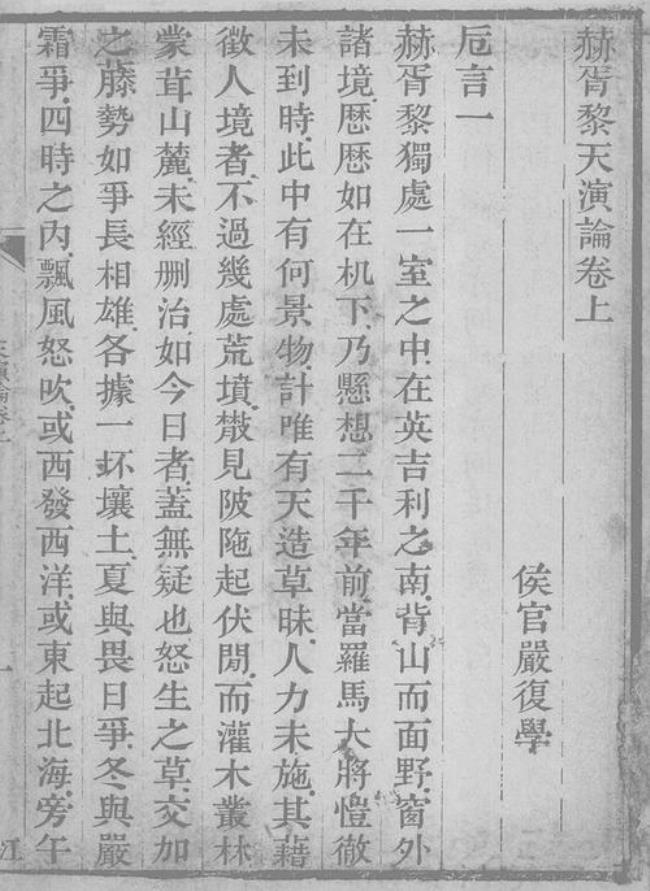 赫胥黎天演論卷上
侯官嚴復學
卮言一
赫胥黎獨處一室之中、在英吉利之南、背山而面野、窗外
諸境、歷歷如在机下、乃懸想二千年前、當羅馬大將愷徹
未到時、此中有何景物、計唯有天造草昧、人力未施、其藉
徵人境者、不過幾處荒墳、散見陂陁起伏間、而灌木叢林
蒙茸山麓、未經刪治、如今日者、蓋無疑也怒生之草、交加
之藤勢如爭長相雄、各據一抔壤土、夏與畏日爭、冬與嚴
霜爭、四時之內、飄風怒吹、或西發西洋、或東起北海、旁午
天演論卷上
一